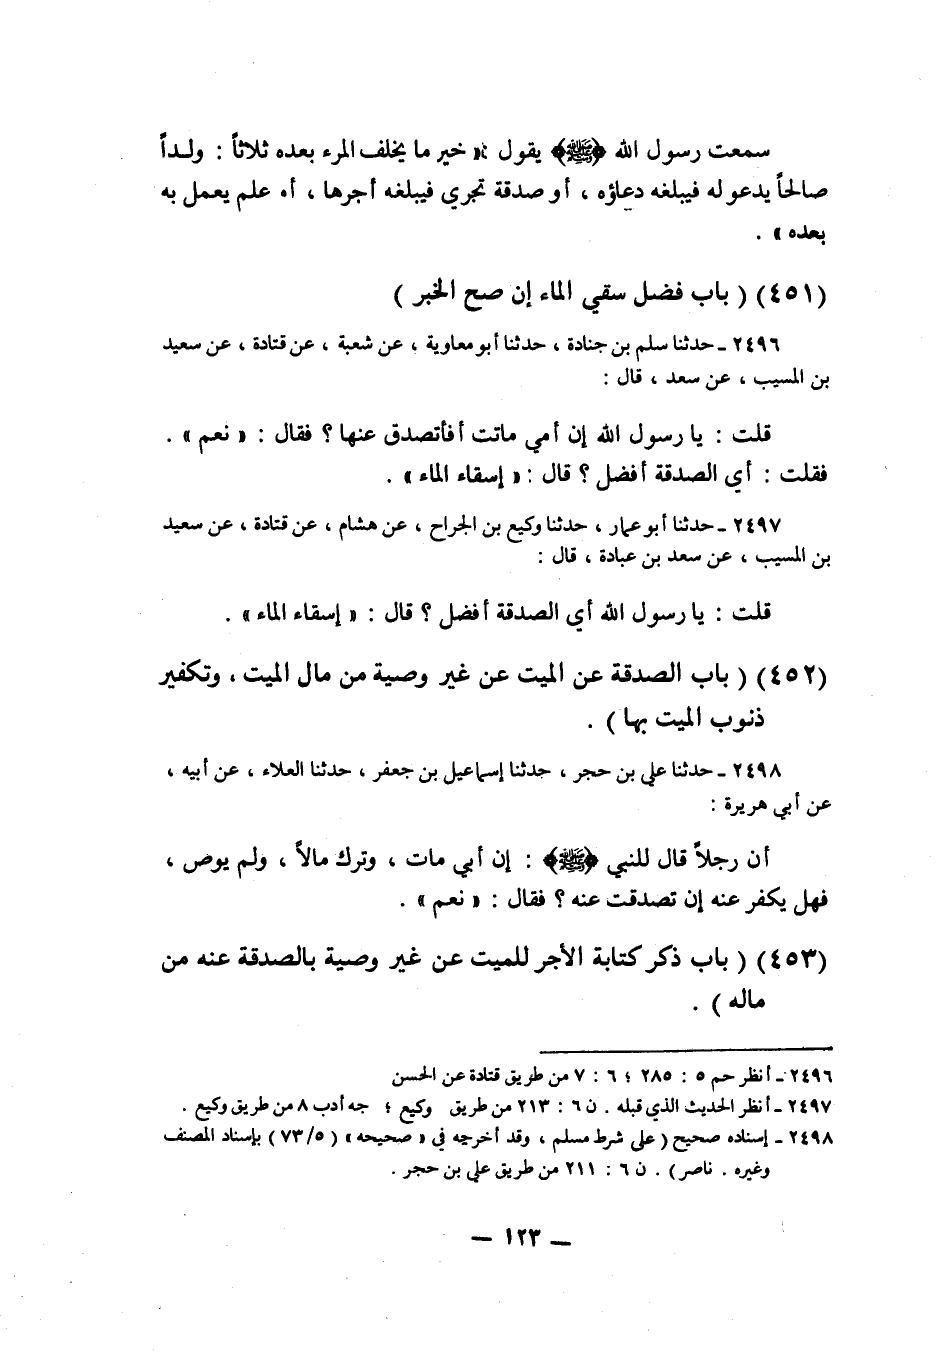 سمعت رسول الله ﴿ﷺ﴾ يقول : « خير ما يخلف المرء بعده ثلاثاً : ولـداً
صالحاً يدعو له فيبلغه دعاؤه ، أو صدقة تجري فيبلغه أجرها ، أه علم يعمل به
بعده » .
(٤٥١) ( باب فضل سقي الماء إن صح الخبر )
٢٤٩٦ ـ حدثنا سلم بن جنادة ، حدثنا أبو معاوية ، عن شعبة ، عن قتادة ، عن سعيد
بن المسيب ، عن سعد ، قال :
قلت : يا رسول الله إن أمي ماتت أفأتصدق عنها ؟ فقال : « نعم » .
فقلت : أي الصدقة أفضل ؟ قال : « إسقاء الماء » .
٢٤٩٧ ـ حدثنا أبو عمار ، حدثنا وكيع بن الجراح ، عن هشام ، عن قتادة ، عن سعيد
بن المسيب ، عن سعد بن عبادة ، قال :
قلت : يا رسول الله أي الصدقة أفضل ؟ قال : « إسقاء الماء » .
(٤٥٢) ( باب الصدقة عن الميت عن غير وصية من مال الميت ، وتكفير
ذنوب الميت بها ) .
٢٤٩٨ ـ حدثنا علي بن حجر ، حدثنا إسماعيل بن جعفر ، حدثنا العلاء ، عن أبيه ،
عن أبي هريرة :
أن رجلاً قال للنبي ﴿ﷺ﴾ : إن أبي مات ، وترك مالاً ، ولم يوص ،
فهل يكفر عنه إن تصدقت عنه ؟ فقال : « نعم » .
(٤٥٣) ( باب ذكر كتابة الأجر للميت عن غير وصية بالصدقة عنه من
ماله ) .
٢٤٩٦ ـ أنظر حم ٥ : ٢٨٥ ؛ ٦ : ٧ من طريق قتادة عن الحسن
٢٤٩٧ ـ أنظر الحديث الذي قبله . ن ٦ : ٢١٣ من طريق وكيع ؛ جه أدب ٨ من طريق وكيع .
٢٤٩٨ ـ إسناده صحيح ( على شرط مسلم ، وقد أخرجه في « صحيحه » ( ٥/ ٧٣ ) بإسناد المصنف
وغيره . ناصر ) . ن ٦ : ٢١١ من طريق علي بن حجر .
ـ ١٢٣ ـ